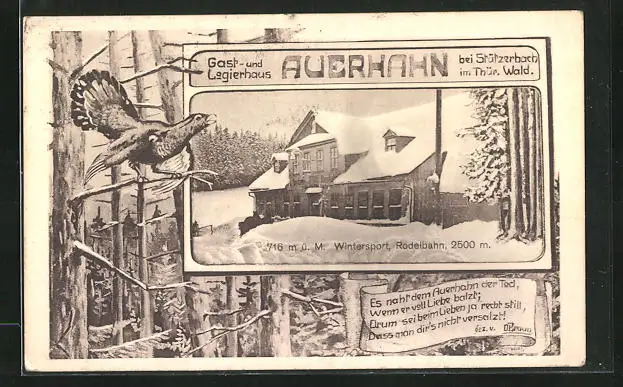 Gast- und
Logierhaus
AUERHAHN
bei Stützerbach
im Thür. Wald.
716 m ü. M. Wintersport, Rodelbahn, 2500 m.
Es naht dem Auerhahn der Tod,
Wenn er voll Liebe balzt;
Drum sei beim Lieben ja recht still,
Dass man dir's nicht versalzt!
Gez. v. O. Braun